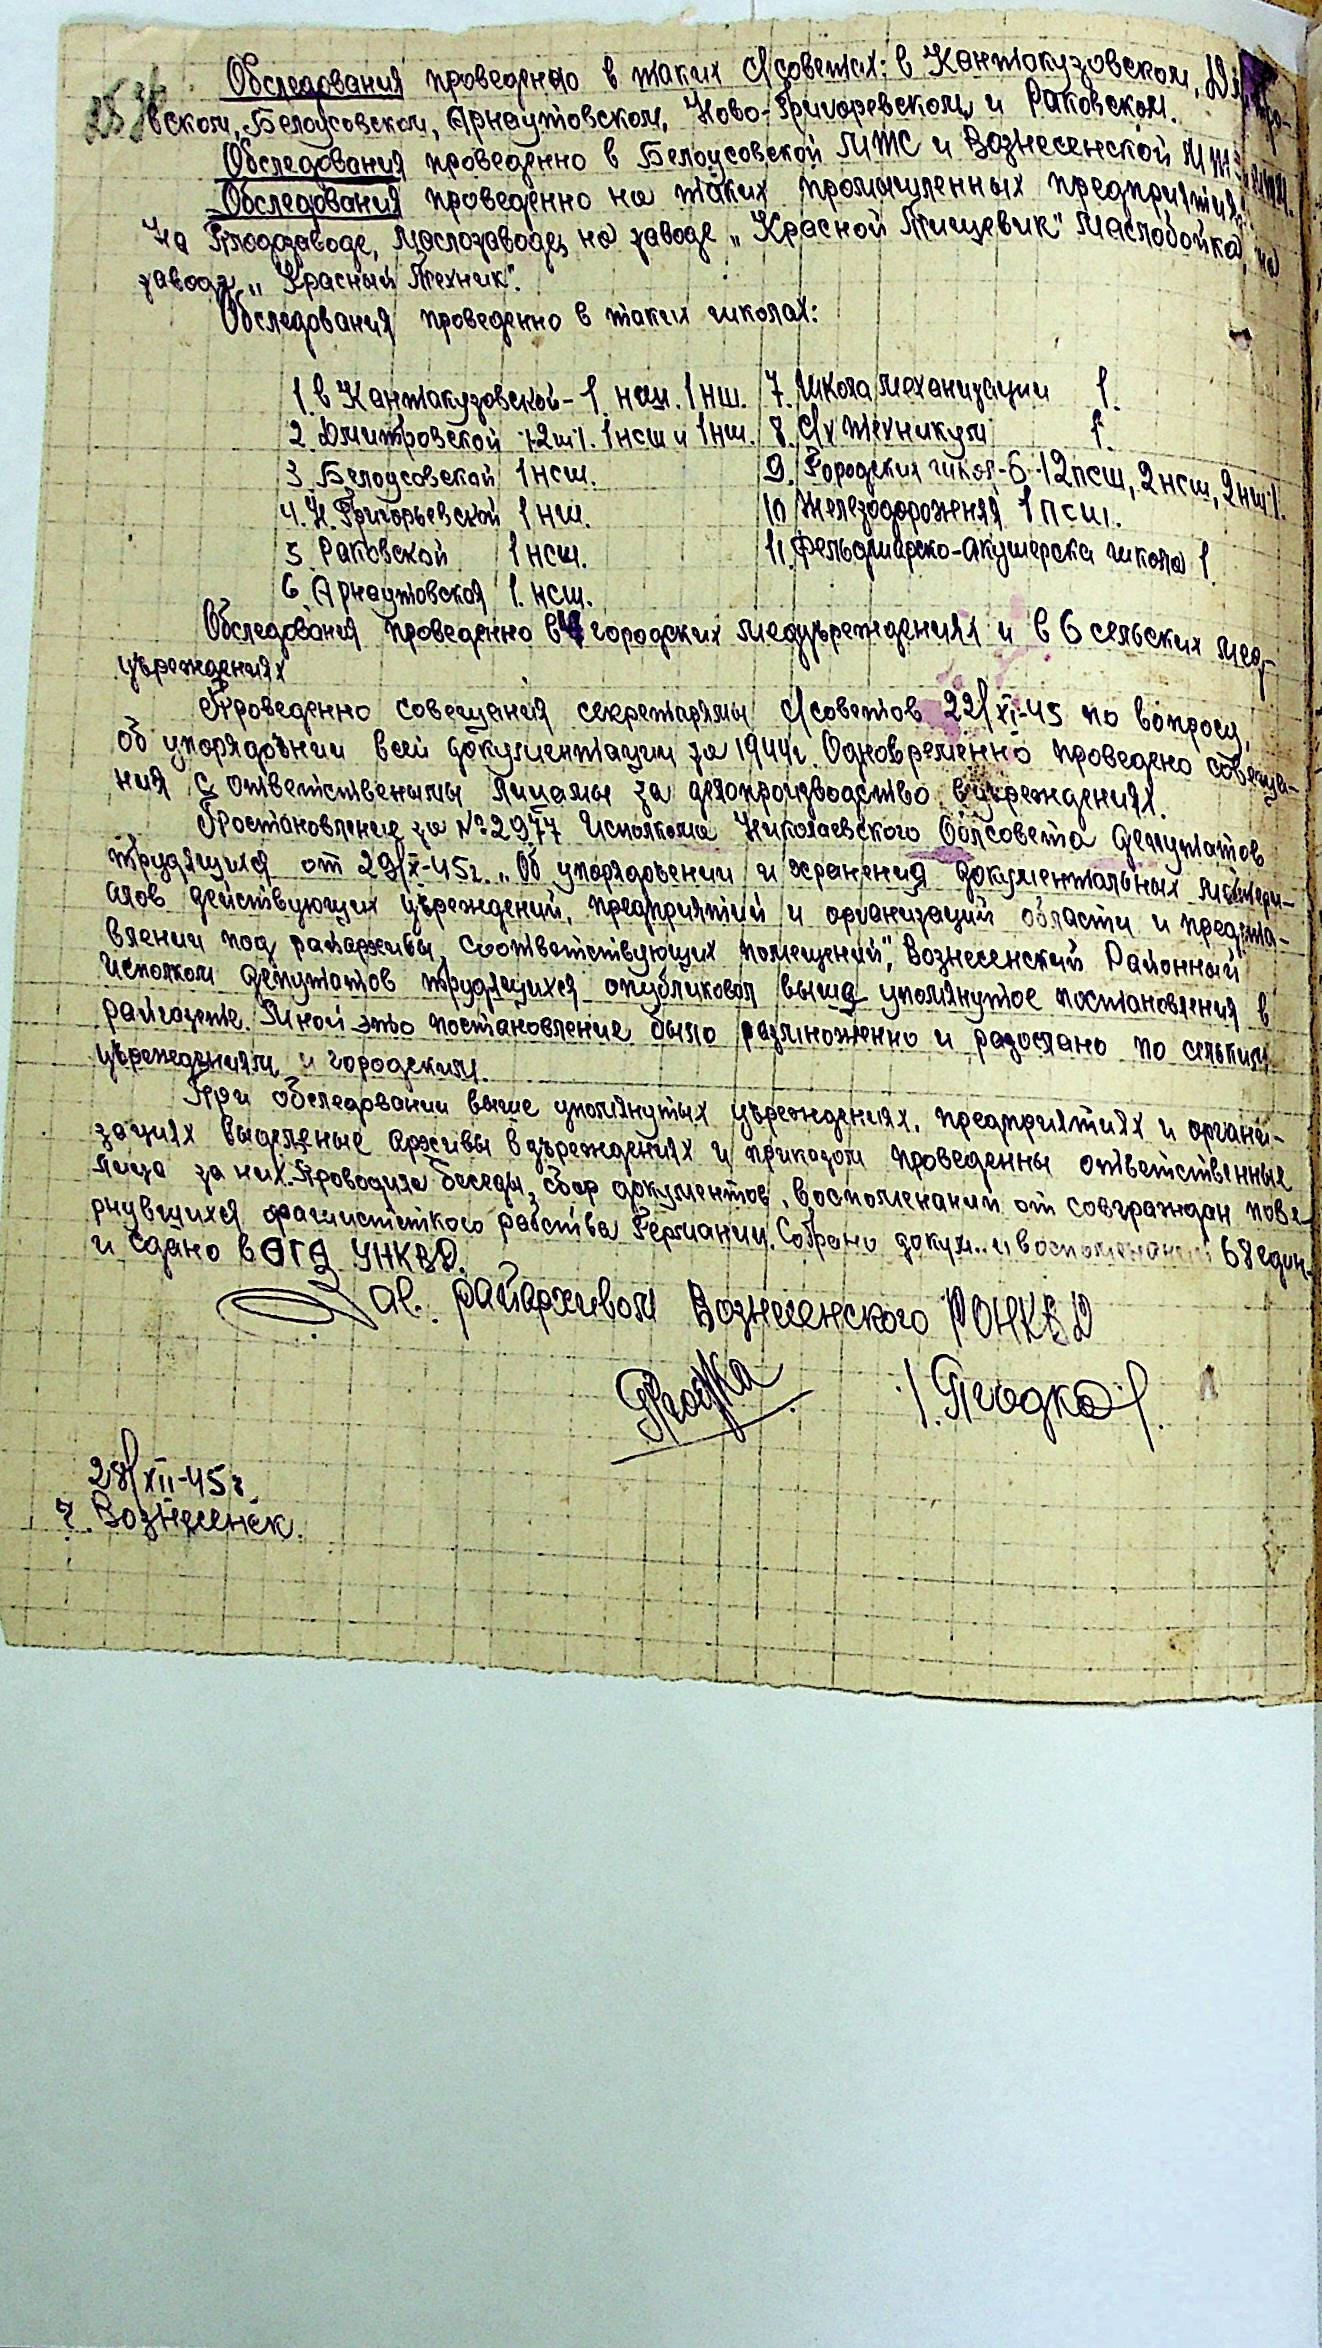 Обследования проведенно в таких с/советах: в Кантакузовском, Дмитро-
вском, Белоусовском, Арнаутовском, Ново-Григоревском, и Раковском.
Обследования проведенно в Белоусовской МТС и Вознесенской МТС
Обследования проведенно на таких промышленных предприятия:
На Плодозаводе, Маслозаводе, на заводе „Красной Пищевик" Маслобойка, на
заводе „Красный Техник".
Обследования проведенно в таких школах:
1. в Кантакузовской - 1. нсш. 1 нш. 7. Школа механизации 1.
2. Дмитровской /2ш/. 1 нсш и 1 нш. 8. С/х техникум 1.
3. Белоусовской 1 нсш. 9. Городских школ - 6 - /2 псш, 2 нсш, 2 нш/.
4. Н. Григорьевской 1 нш. 10 Железодорожняя 1 псш.
5. Раковской 1 нсш. 11. Фельдшарско-акушерска школа 1.
6. Арнаутовская 1. нсш.
Обследования проведенно в 4 городских медучреждениях и в 6 сельских мед-
учреждениях
Проведенно совещания секретарямы с/советов 22/XI-45 по вопросу,
об упорядочнии всей документации за 1944 г. Одновременно проведено совеща-
ния с ответственымы лицамы за делопроизводство в учреждениях.
Простановление за № 2977 Исполкома Николаевского Облсовета Депутатов
трудящихся от 29/X-45 г. „Об упорядочении и хранения документальных матери-
алов действующих учреждений, предприятий и организаций области и предста-
влении под райархивы, соответствующих помещений", Вознесенский Районный
исполком депутатов трудящихся опубликовал выше упомянутое постановления в
райгазете. Мной это постановление было размноженно и разослано по сельким
учреждениям, и городским.
При обследовании выше упомянутых учреждениях, предприятиях и органи-
зациях выделеные архивы в учреждениях и приказом проведенны ответственные
лица за них. Проводила беседы, сбор документов, воспоменаний от совграждан пове-
рнувшихся фашистсткого рабства Германии. Собрано докум. и воспоменаний 68 един.
и сдано в ОГА УНКВД.
Зав. райархивом Вознесенского РОНКВД
/. Пгодка /.
28/XII-45 г.
г. Вознесенск.